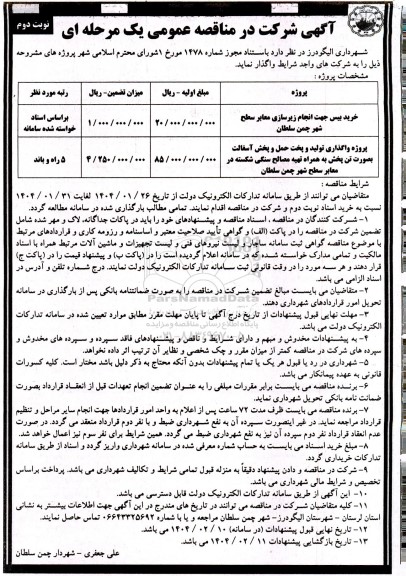 نوبت دوم
آگهی شرکت در مناقصه عمومی یک مرحله ای
شهرداری الیگودرز در نظر دارد باستناد مجوز شماره ۱۴۷۸ مورخ شورای محترم اسلامی شهر پروژه های مشروحه
ذیل را به شرکت های واجد شرایط واگذار نماید.
مشخصات پروژه :
پروژه مبلغ اولیه - ریال میزان تضمین- ریال رتبه مورد نظر
خرید بیس جهت انجام زیرسازی معابر سطح شهر چمن سلطان ۲۰/۰۰۰/۰۰۰/۰۰۰ ۱/۰۰۰/۰۰۰/۰۰۰ براساس اسناد خواسته شده سامانه
پروژه واگذاری تولید و پخت حمل و پخش آسفالت بصورت تن پخش به همراه تهیه مصالح سنگی شکسته در معابر سطح شهر چمن سلطان ۸۵/۰۰۰/۰۰۰/۰۰۰ ۴/۲۵۰/۰۰۰/۰۰۰ ۵ راه و باند
شرایط مناقصه :
متقاضیان می توانند از طریق سامانه تدارکات الکترونیک دولت از تاریخ ۱۴۰۴/۰۱/۲۶ لغایت ۱۴۰۴/۰۱/۳۱
نسبت به خرید اسناد نوبت دوم و شرکت در مناقصه اقدام نمایند. تمامی مطالب بارگذاری شده در سامانه مطالعه گردد.
۱- شرکت کنندگان در مناقصه ، اسناد مناقصه و پیشنهادهای خود را باید در پاکات جداگانه، لاک و مهر شده شامل
تضمین شرکت در مناقصه را در پاکت (الف) و گواهی تأیید صلاحیت معتبر و اساسنامه و رزومه کاری و قراردادهای مرتبط
با موضوع مناقصه گواهی ثبت سامانه لیست نیروهای فنی و لیست تجهیزات و ماشین آلات مرتبط همراه با اسناد
مالکیت و تمامی مدارک خواسته شده که در سامانه اعلام گردیده است را در (پاکت ب) و پیشنهاد قیمت را در (پاکت ج)
قرار دهند و هر سه مورد را در وقت قانونی ثبت سامانه تدارکات الکترونیک دولت نمایند. درج شماره تلفن و آدرس در
اسناد الزامی می باشد.
۲- متقاضیان می بایست مبالغ تضمین شرکت در مناقصه را به صورت ضمانتنامه بانکی پس از بارگذاری در سامانه
تحویل امور قراردادهای شهرداری دهند.
۳- مهلت نهایی قبول پیشنهادات از تاریخ درج آگهی تا پایان مهلت مقرر مطابق موارد تعیین شده در سامانه تدارکات
الکترونیک دولت می باشد.
۴- به پیشنهادات مخدوش و مبهم و دارای شرایط و ناقص و پیشنهادهای فاقد سپرده و سپرده های مخدوش و
سپرده های شرکت در مناقصه کمتر از میزان مقرر و چک شخصی و نظایر آن ترتیب اثر داده نخواهد.
۵- شهرداری در رد یا قبول هر یک یا تمام پیشنهادات بدون آنکه محتاج به ذکر دلیل باشد مختار است. کلیه کسورات
قانونی به عهده پیمانکار می باشد.
۶- برنده مناقصه می بایست برابر مقررات مبلغی را به عنوان تضمین انجام تعهدات قبل از انعقاد قرارداد بصورت
ضمانت نامه بانکی تحویل شهرداری نماید.
۷- برنده مناقصه می بایست ظرف مدت ۷۲ ساعت پس از اعلام به واحد امور قراردادها جهت انجام سایر مراحل و تنظیم
قرارداد مراجعه نماید. در غیر اینصورت سپرده آن به نفع شهرداری ضبط و با نفر دوم قرارداد منعقد می گردد. در صورت
عدم انعقاد قرارداد نفر دوم سپرده آن نیز به نفع شهرداری ضبط می گردد. همین شرایط برای نفر سوم نیز اعمال خواهد شد.
۸- مبلغ خرید اسناد می بایست به حساب شماره معرفی شده در سامانه شهرداری واریز گردد و اسناد از طریق سامانه
تدارکات خریداری گردد.
۹- شرکت در مناقصه و دادن پیشنهاد دقیقاً به منزله قبول تمامی شرایط و تکالیف شهرداری می باشد. پرداخت براساس
تخصیص و شرایط مالی شهرداری می باشد.
۱۰- این آگهی از طریق سامانه تدارکات الکترونیک دولت قابل دسترسی می باشد.
۱۱- کلیه متقاضیان شرکت در مناقصه می توانند در تاریخ های مندرج در این آگهی جهت اطلاعات بیشتر به نشانی
استان لرستان - شهرستان الیگودرز- شهر چمن سلطان مراجعه و یا با شماره ۰۶۶۴۳۳۲۵۶۹۲ تماس حاصل نمایند.
۱۲- تاریخ نهایی قبول پیشنهادات (در سامانه) ۱۴۰۴/۰۲/۱۰ می باشد.
۱۳- تاریخ بازگشایی پیشنهادات ۱۴۰۴/۰۲/۱۱ می باشد.
علی جعفری - شهردار چمن سلطان
ParsNamadData
پایگاه اطلاع رسانی مناقصه و مزایده